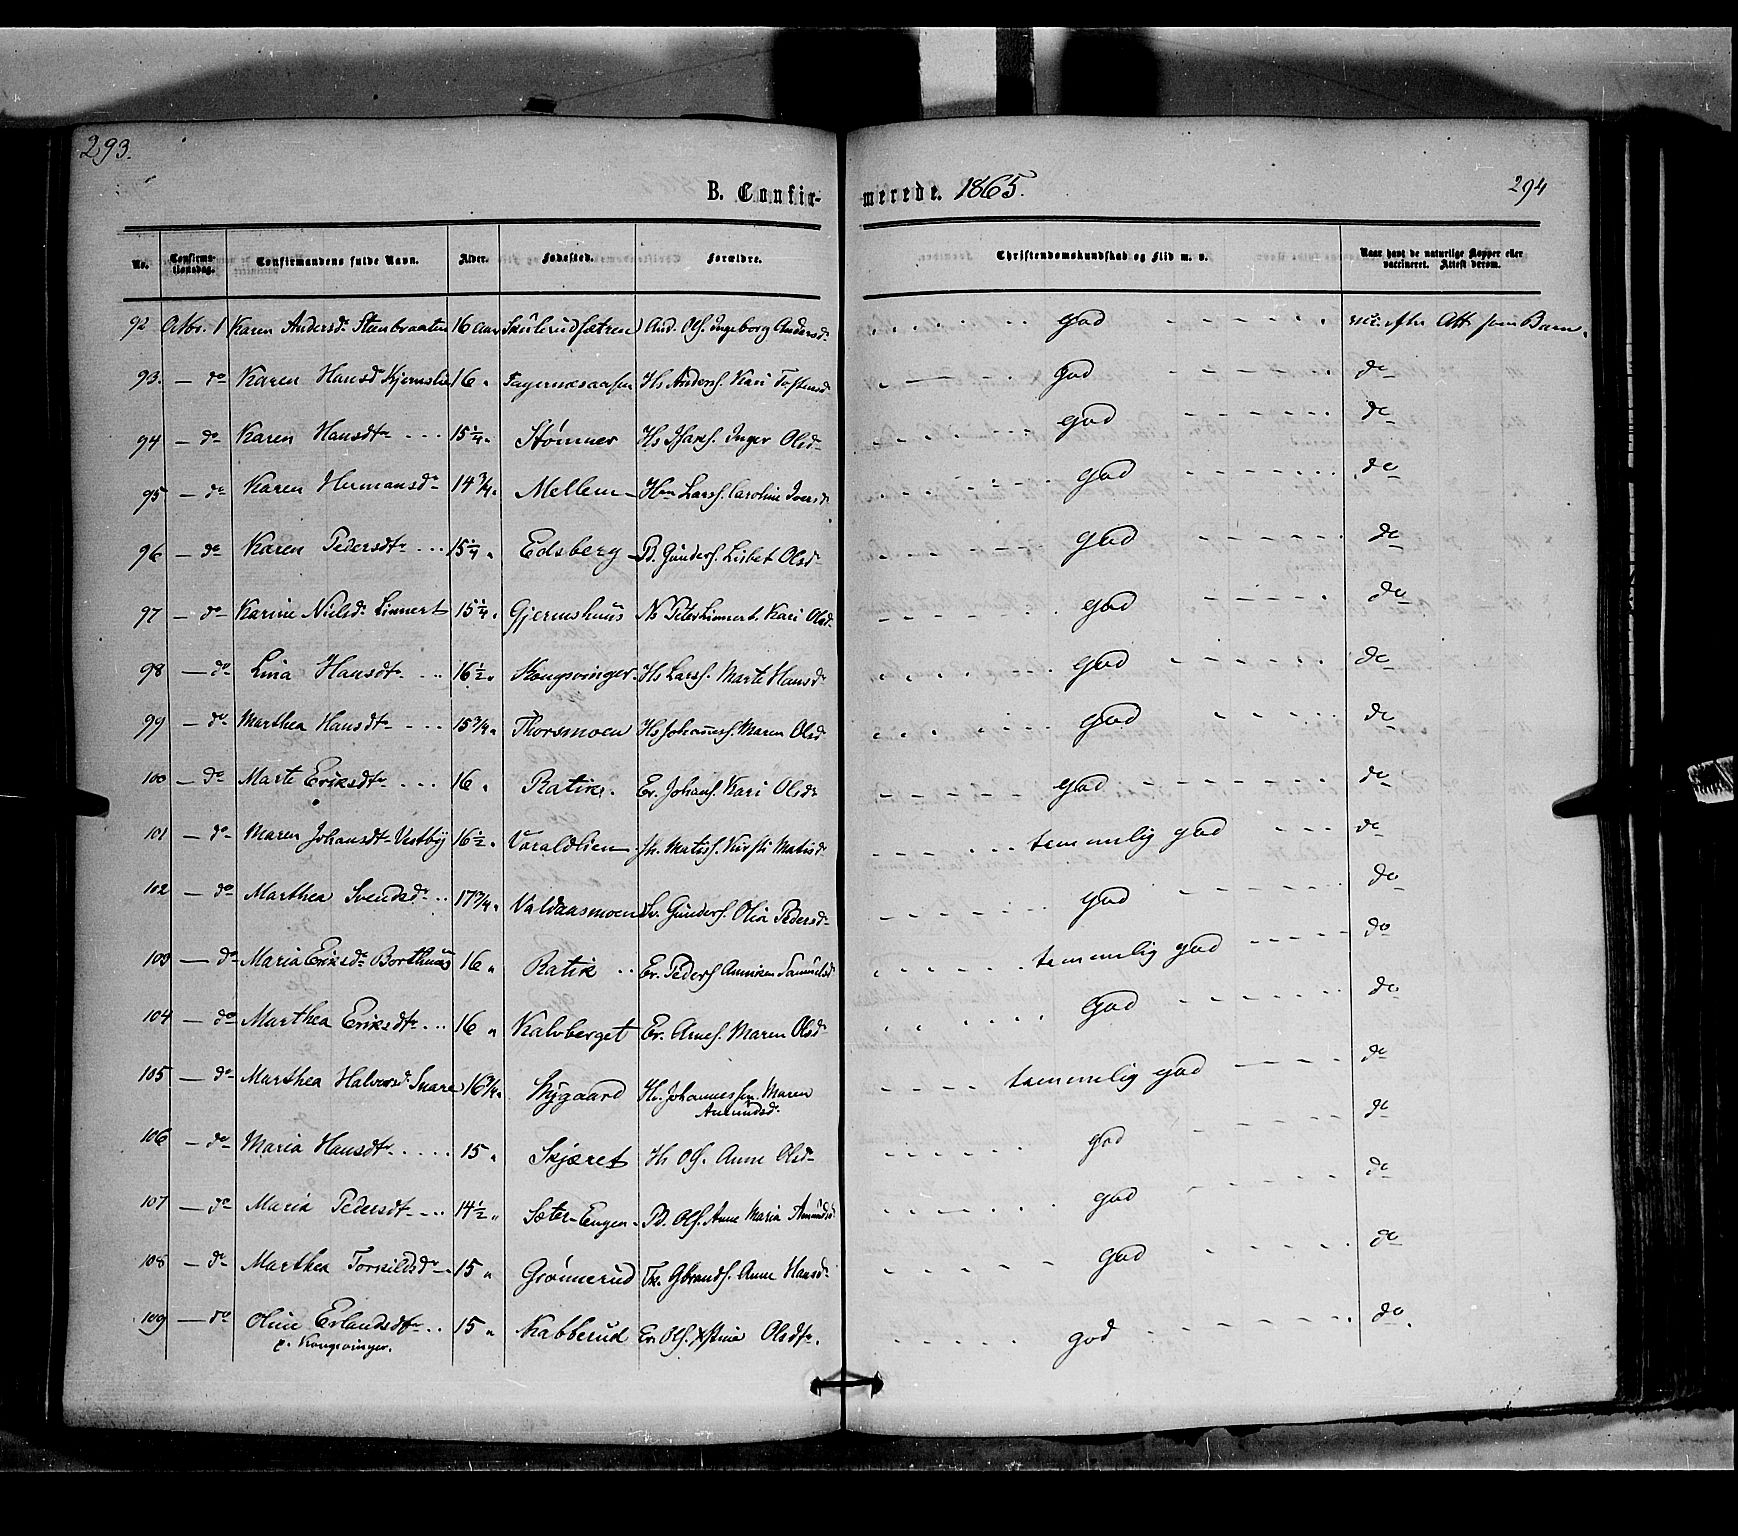 293.
294
B. Confirmerede. 1865.
No. Confirmationsdag. Confirmandens fulde Navn. Alder. Fødested. Forældre. Christendomskundskab og Flid m. v. Naar havt de naturlige Kopper eller vaccineret. Attest derom.
92 Octbr. 1 Karen Andersdr Steenbraaten 16 aar Skulerudsætren And. Ols. Ingeborg Andersdr god vacc. efter Att som Barn
93. - do Karen Hansd Kjernslie 16 " Fagernæsaasen Hs Anders. Kari Torstensd god do
94 - do Karen Hansdtr 15 1/4 " Stømner Hs Inger Olsd god do
95 - do Karen Hermansdr 14 3/4 " Mellem Hm Larss. Caroline Iversd god do
96 - do Karen Pedersdtr 15 1/4 " Edsberg P. Gunders. Lisbet Olsd god do
97 - do Karine Nielsdr Linnert 15 1/4 " Gjermshuus Ns Peter Linnert. Kari Olsd god do
98 - do Lina Hansdtr 16 1/2 " Kongsvinger Hs Larss. Marte Hansd god do
99 - do Marthea Hansdtr 15 3/4 " Thorsmoen Hs Johanness. Maren Olsd god do
100 - do Marte Eriksdtr 16 " Ratike Er. Johans. Kari Olsdr god do
101 - do Maren Johansdtr Vestby 16 1/2 " Varaldlien Jh. Matiss. Kirsti Matisdr temmelig god do
102 - do Marthea Svendsdr 17 3/4 " Valdaasmoen Sv. Gunders. Olia Pedersd god do
103 - do Maria Eriksdr Borthuus 16 " Ratik Er. Peders Anniken Samuelsd temmelig god do
104 - do Marthea Eriksdtr 16 " Kalvberget Er. Arnes. Maren Olsdr God do
105 - do Marthea Halvorsd. Snare 16 3/4 " Nygaard Hr. Johannessen. Maren
Amundsd. temmelig god do
106 - do Maria Hansdtr 15 " Skjæret Hs Ols. Anne Olsd god do
107 - do Maria Pedersdtr 14 1/2 " Sæter-Engen P. Ols. Anne Maria Amundsd god do
108 - do Marthea Torkildsdr 15 " Grønnerud Tk. Gbrands. Anne Hansdr god do
109 - do Oline Erlandsdtr 15 " Kabberud Er. Ols. Xstine Olsdtr. god do
p. Kongsvinger.